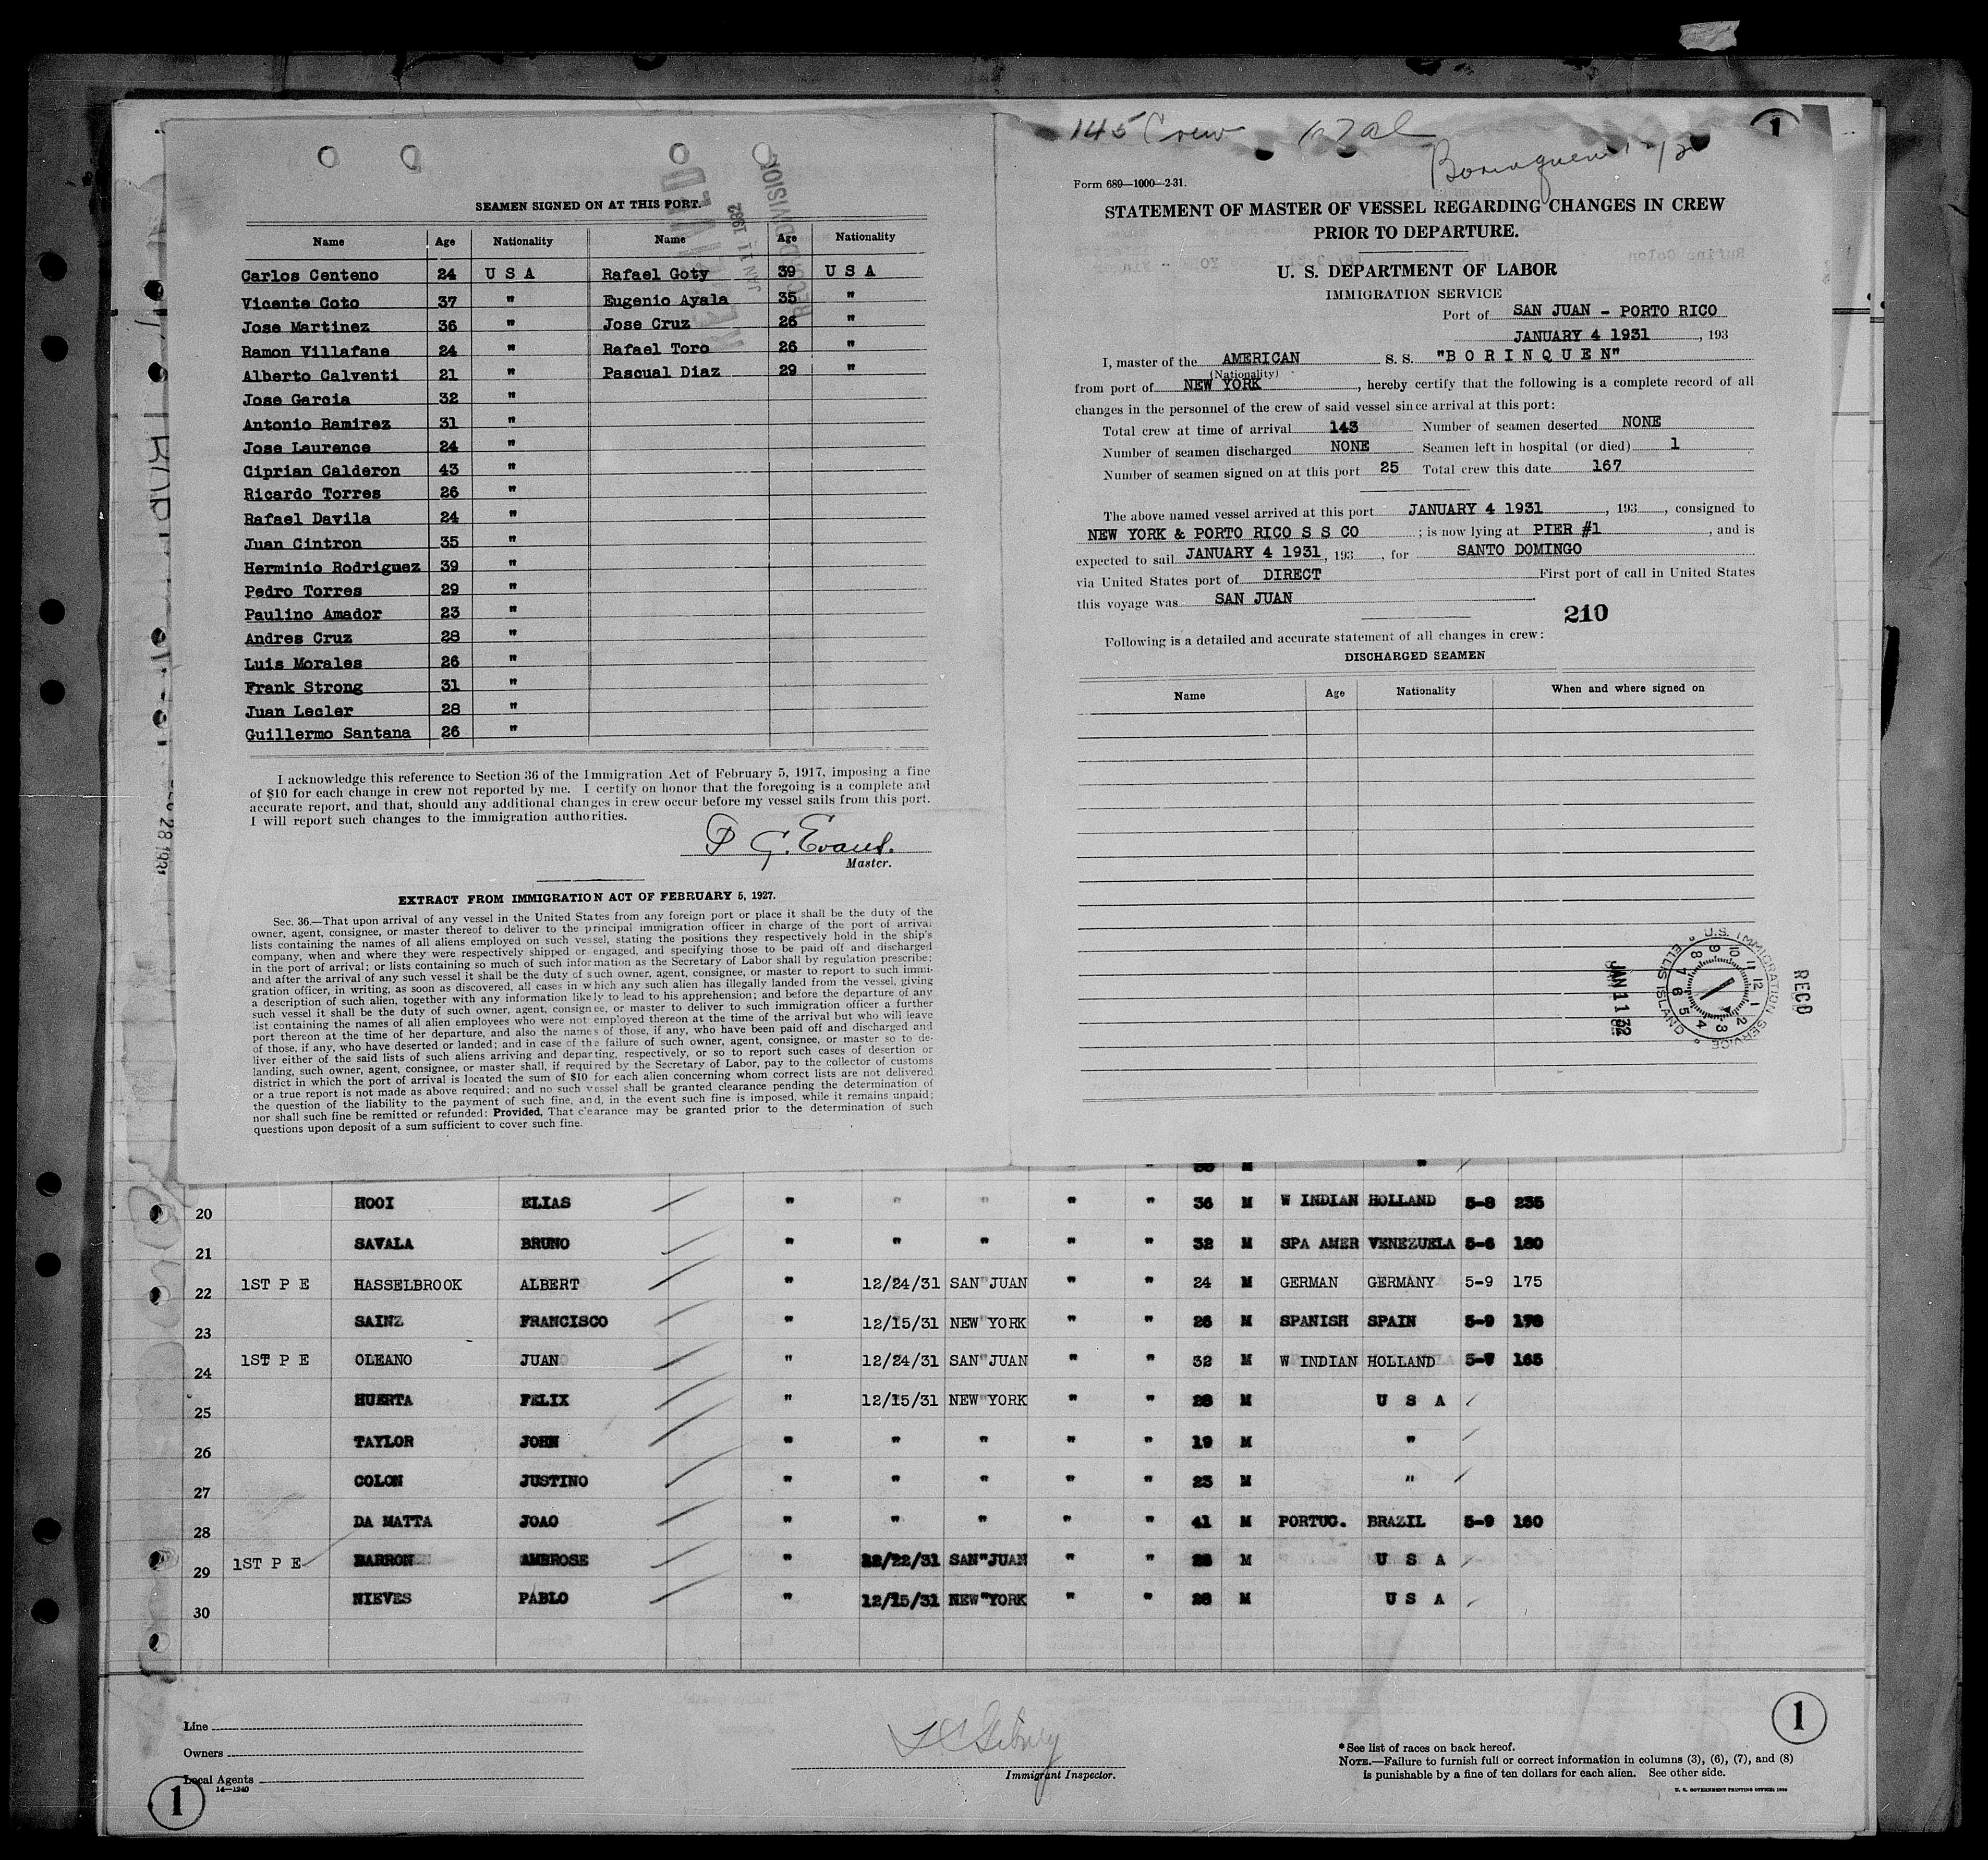 SEAMEN SIGNED ON AT THIS PORT.
Name Age Nationality Name Age Nationality
Carlos Centeno 24 U S A Rafael Goty 39 U S A
Vicente Coto 37 " Eugenio Ayala 35 "
Jose Martinez 36 " Jose Cruz 26 "
Ramon Villafane 24 " Rafael Toro 26 "
Alberto Calventi 21 " Pascual Diaz 29 "
Jose Garcia 32 "
Antonio Ramirez 31 "
Jose Laurence 24 "
Ciprian Calderon 43 "
Ricardo Torres 26 "
Rafael Davila 24 "
Juan Cintron 35 "
Herminio Rodriguez 39 "
Pedro Torres 29 "
Paulino Amador 23 "
Andres Cruz 28 "
Luis Morales 26 "
Frank Strong 31 "
Juan Lecler 28 "
Guillermo Santana 26 "
I acknowledge this reference to Section 36 of the Immigration Act of February 5, 1917, imposing a fine
of $10 for each change in crew not reported by me. I certify on honor that the foregoing is a complete and
accurate report, and that, should any additional changes in crew occur before my vessel sails from this port.
I will report such changes to the immigration authorities.
P G. Evans.
Master.
EXTRACT FROM IMMIGRATION ACT OF FEBRUARY 5, 1927.
Sec. 36.—That upon arrival of any vessel in the United States from any foreign port or place it shall be the duty of the
owner, agent, consignee, or master thereof to deliver to the principal immigration officer in charge of the port of arrival
lists containing the names of all aliens employed on such vessel, stating the positions they respectively hold in the ship's
company, when and where they were respectively shipped or engaged, and specifying those to be paid off and discharged
in the port of arrival; or lists containing so much of such information as the Secretary of Labor shall by regulation prescribe;
and after the arrival of any such vessel it shall be the duty of such owner, agent, consignee, or master to report to such immi-
gration officer, in writing, as soon as discovered, all cases in which any such alien has illegally landed from the vessel, giving
a description of such alien, together with any information likely to lead to his apprehension; and before the departure of any
such vessel it shall be the duty of such owner, agent, consignee, or master to deliver to such immigration officer a further
list containing the names of all alien employees who were not employed thereon at the time of the arrival but who will leave
port thereon at the time of her departure, and also the names of those, if any, who have been paid off and discharged and
of those, if any, who have deserted or landed; and in case of the failure of such owner, agent, consignee, or master so to de-
liver either of the said lists of such aliens arriving and departing, respectively, or so to report such cases of desertion or
landing, such owner, agent, consignee, or master shall, if required by the Secretary of Labor, pay to the collector of customs
district in which the port of arrival is located the sum of $10 for each alien concerning whom correct lists are not delivered
or a true report is not made as above required; and no such vessel shall be granted clearance pending the determination of
the question of the liability to the payment of such fine, and, in the event such fine is imposed, while it remains unpaid;
nor shall such fine be remitted or refunded: Provided, That clearance may be granted prior to the determination of such
questions upon deposit of a sum sufficient to cover such fine.
RECEIVED
JAN 11 1932
RECORD DIVISION
145 Crew
1
Borinquen
Form 689—1000—2-31.
STATEMENT OF MASTER OF VESSEL REGARDING CHANGES IN CREW
PRIOR TO DEPARTURE.
U. S. DEPARTMENT OF LABOR
IMMIGRATION SERVICE
Port of SAN JUAN - PORTO RICO
JANUARY 4 1931, 193
I, master of the AMERICAN S. S. "B O R I N Q U E N"
(Nationality)
from port of NEW YORK, hereby certify that the following is a complete record of all
changes in the personnel of the crew of said vessel since arrival at this port:
Total crew at time of arrival 143 Number of seamen deserted NONE
Number of seamen discharged NONE Seamen left in hospital (or died) 1
Number of seamen signed on at this port 25 Total crew this date 167
The above named vessel arrived at this port JANUARY 4 1931, 193, consigned to
NEW YORK & PORTO RICO S S CO; is now lying at PIER #1, and is
expected to sail JANUARY 4 1931, 193, for SANTO DOMINGO
via United States port of DIRECT First port of call in United States
this voyage was SAN JUAN
210
Following is a detailed and accurate statement of all changes in crew:
DISCHARGED SEAMEN
Name Age Nationality When and where signed on
RECD
U.S. IMMIGRATION SERVICE
ELLIS ISLAND
12 1 2 3 4 5 6 7 8 9 10 11
JAN 11 32
DEC 28 1931
20 HOOI ELIAS " " " " " 36 M W INDIAN HOLLAND 5-8 235
21 SAVALA BRUNO " " " " " 32 M SPA AMER VENEZUELA 5-6 180
22 1ST P E HASSELBROOK ALBERT " 12/24/31 SAN JUAN " " 24 M GERMAN GERMANY 5-9 175
23 SAINZ FRANCISCO " 12/15/31 NEW YORK " " 26 M SPANISH SPAIN 5-9 178
24 1ST P E OLEANO JUAN " 12/24/31 SAN JUAN " " 32 M W INDIAN HOLLAND 5-7 165
25 HUERTA FELIX " 12/15/31 NEW YORK " " 28 M U S A
26 TAYLOR JOHN " " " " " 19 M "
27 COLON JUSTINO " " " " " 23 M "
28 DA MATTA JOAO " " " " " 41 M PORTUG. BRAZIL 5-9 160
29 1ST P E BARRON AMBROSE " 12/22/31 SAN JUAN " " M U S A
30 NIEVES PABLO " 12/15/31 NEW YORK " " 28 M U S A
Line
Owners
Local Agents
14—1240
1
Immigrant Inspector.
* See list of races on back hereof.
NOTE.—Failure to furnish full or correct information in columns (3), (6), (7), and (8)
is punishable by a fine of ten dollars for each alien. See other side.
U. S. GOVERNMENT PRINTING OFFICE: 1930
1